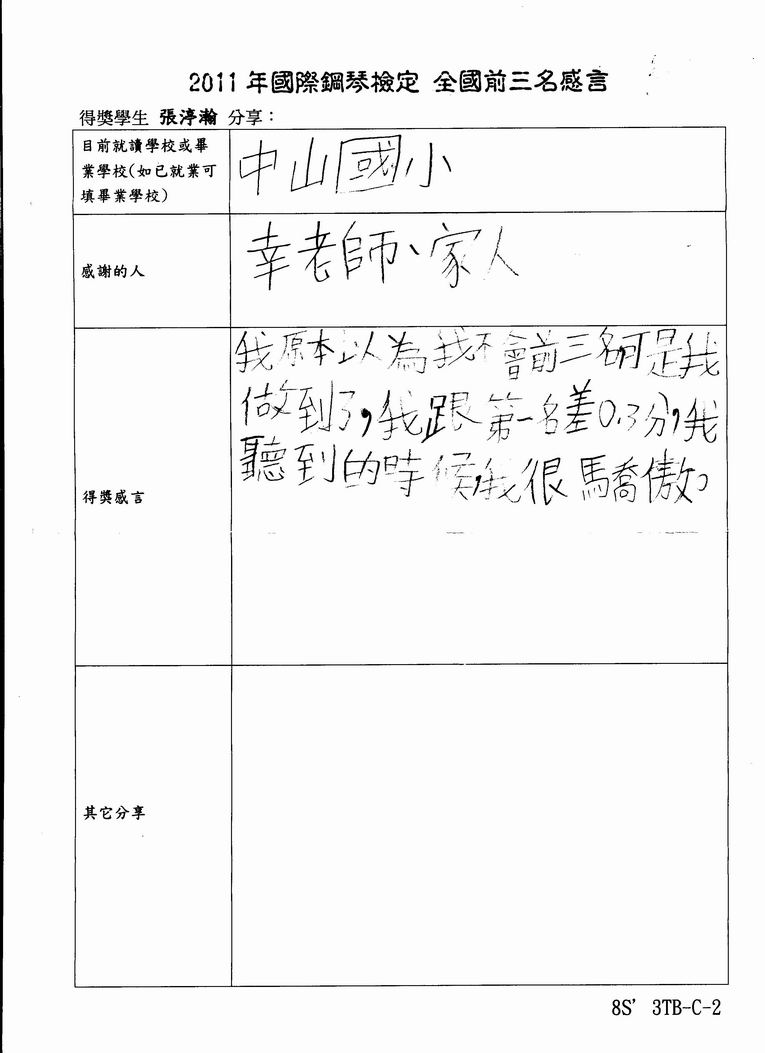 2011 年國際鋼琴檢定 全國前三名感言
得獎學生 張渟瀚 分享：
目前就讀學校或畢
業學校(如已就業可
填畢業學校)
中山國小
感謝的人
幸老師、家人
得獎感言
我原本以為我不會前三名可是我
做到了，我跟第一名差0.3分，我
聽到的時候，我很驕傲。
其它分享
8S' 3TB-C-2